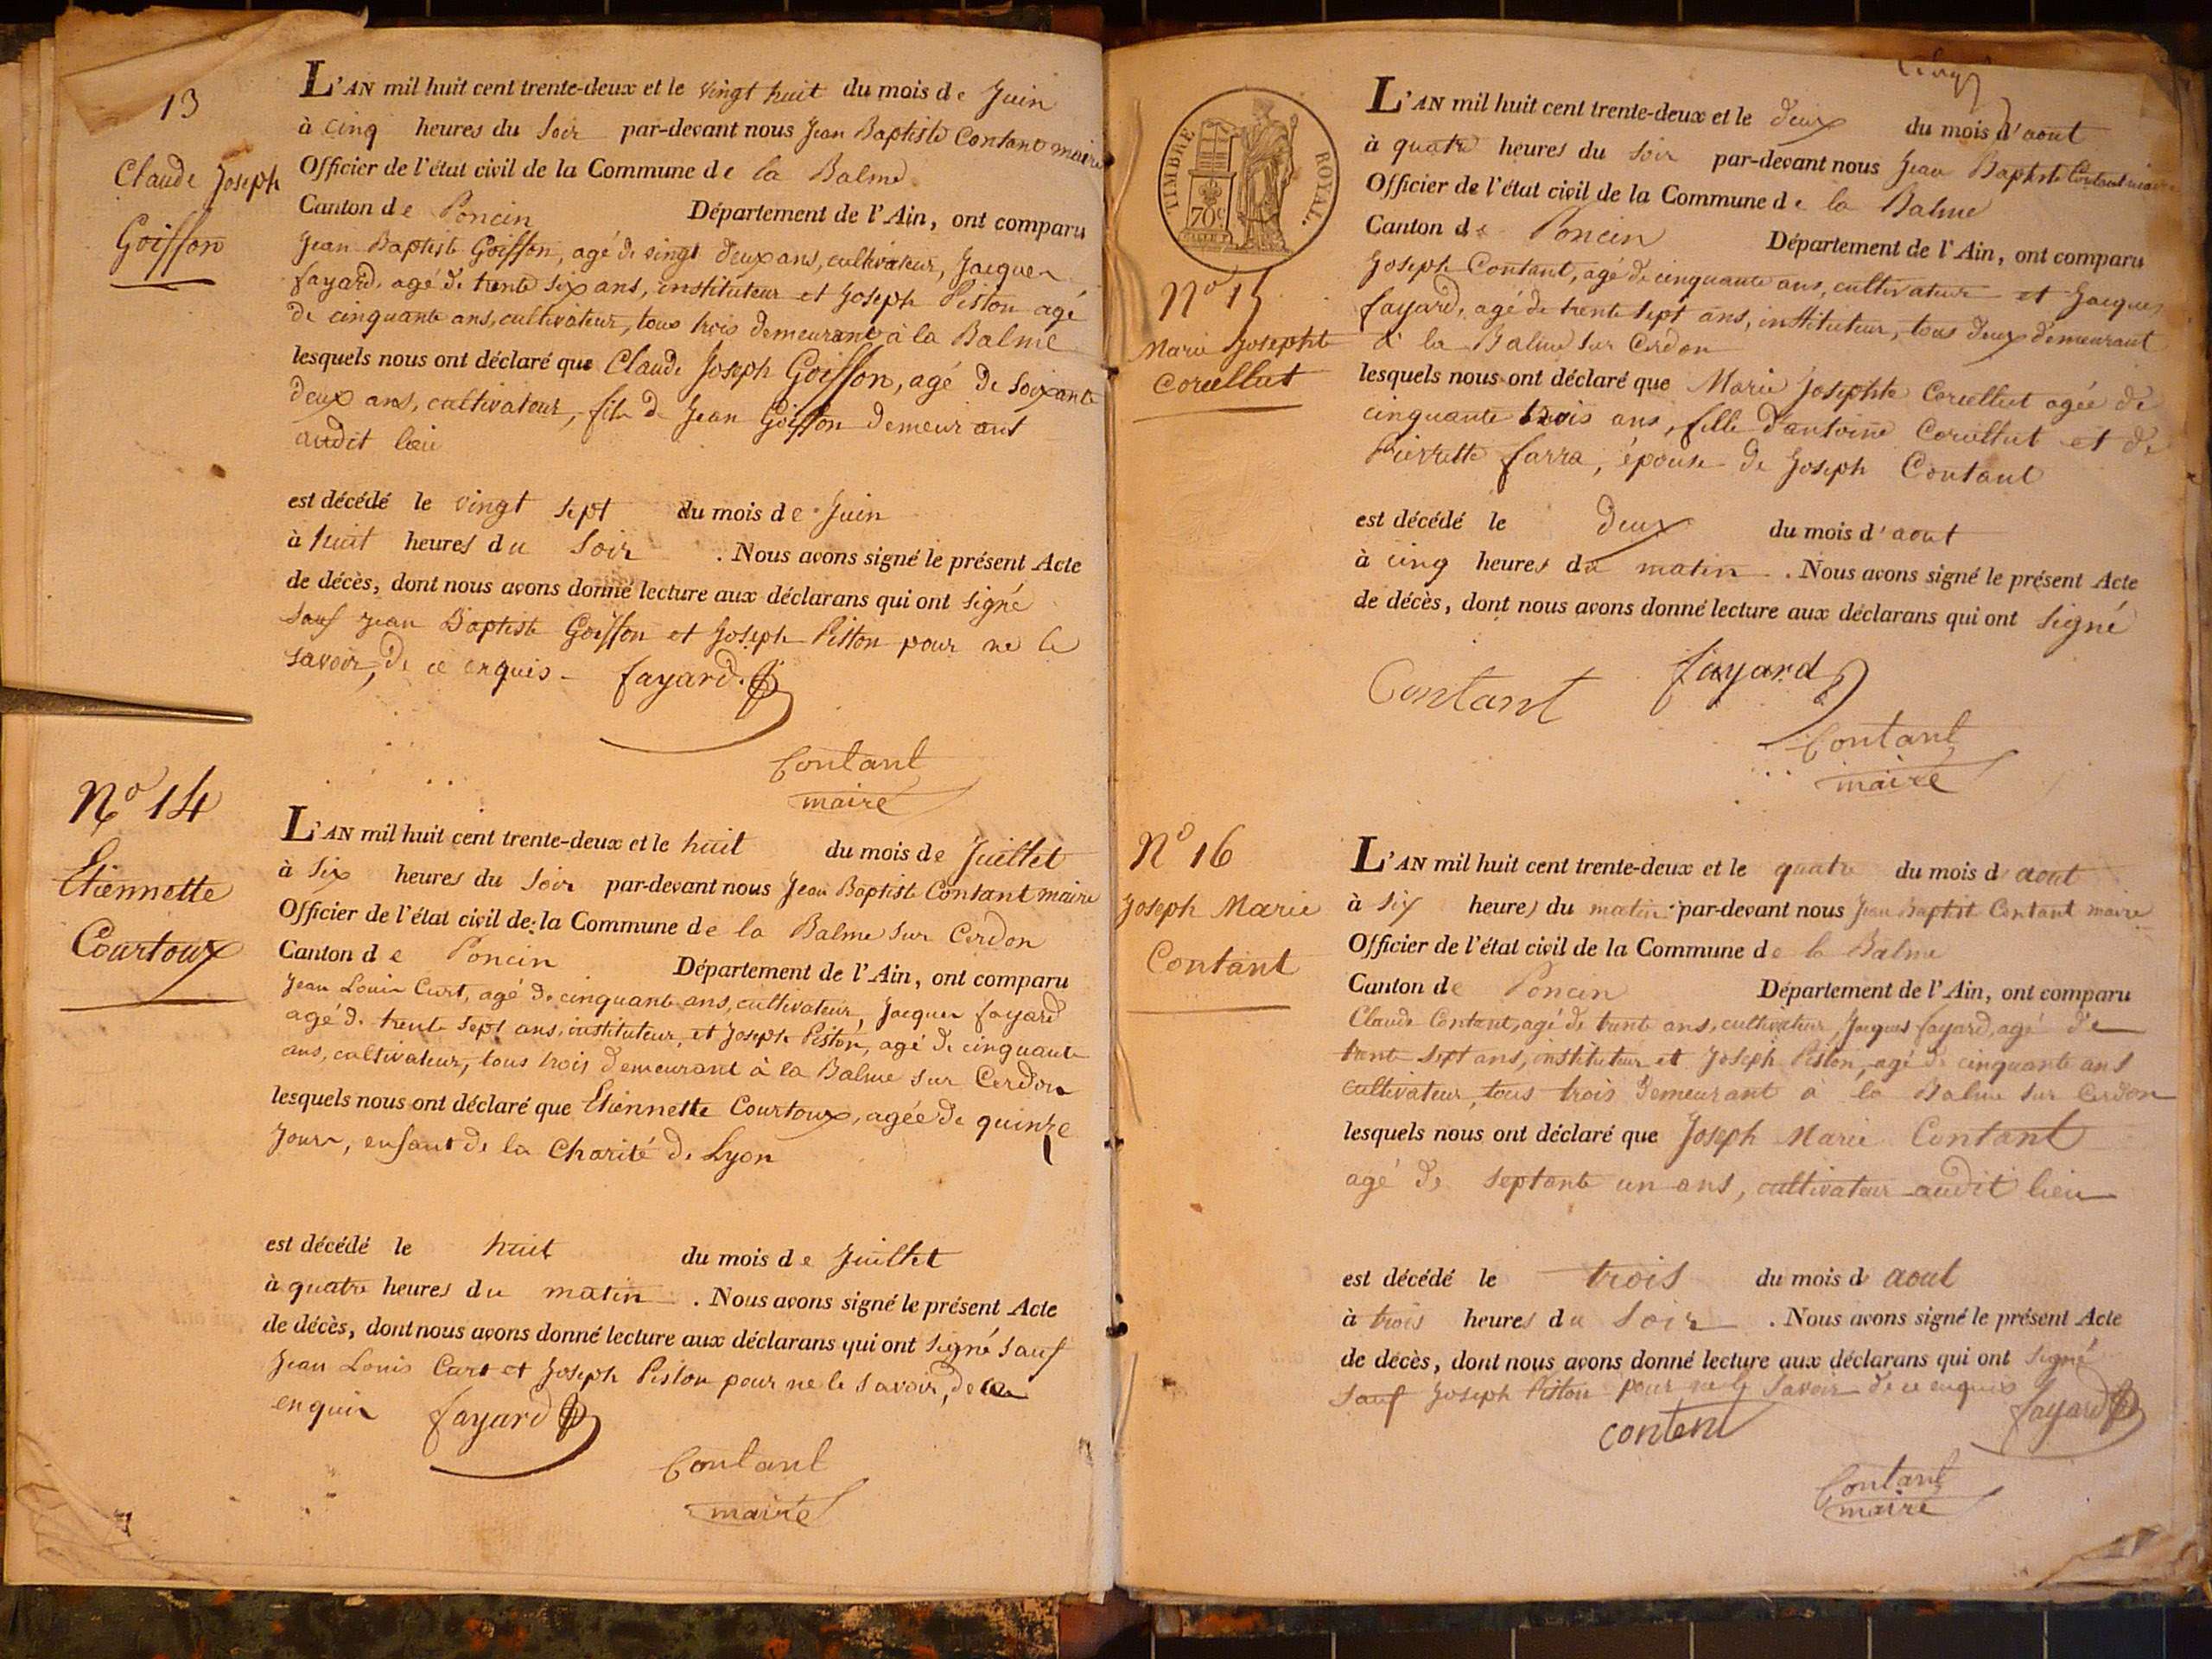 13
Claude Joseph
Goiffon
L'AN mil huit cent trente-deux et le vingt huit du mois de Juin
à cinq heures du Soir par-devant nous Jean Baptiste Contant maire
Officier de l'état civil de la Commune de la Balme
Canton de Poncin Département de l'Ain, ont comparu
Jean Baptiste Goiffon, agé de vingt deux ans, cultivateur, Jacques
fayard, agé de trente six ans, instituteur et Joseph Piston agé
de cinquante ans, cultivateur, tous trois demeurant à la Balme
lesquels nous ont déclaré que Claude Joseph Goiffon, agé de soixante
deux ans, cultivateur, fils de Jean Goiffon demeurant
audit lieu
est décédé le vingt sept du mois de Juin
à huit heures du Soir . Nous avons signé le présent Acte
de décès, dont nous avons donné lecture aux déclarans qui ont signé
sauf Jean Baptiste Goiffon et Joseph Piston pour ne le
savoir, de ce enquis - fayard
Contant
maire
N° 14
Etiennette
Courtoux
L'AN mil huit cent trente-deux et le huit du mois de Juillet
à Six heures du Soir par-devant nous Jean Baptiste Contant maire
Officier de l'état civil de la Commune de la Balme sur Cerdon
Canton de Poncin Département de l'Ain, ont comparu
Jean Louis Curt, agé de cinquante ans, cultivateur, Jacques fayard
agé de trente sept ans, instituteur, et Joseph Piston, agé de cinquante
ans, cultivateur, tous trois demeurant à la Balme sur Cerdon
lesquels nous ont déclaré que Etiennette Courtoux, agée de quinze
jours, enfant de la Charité de Lyon
est décédé le huit du mois de Juillet
à quatre heures du matin . Nous avons signé le présent Acte
de décès, dont nous avons donné lecture aux déclarans qui ont signé sauf
Jean Louis Curt et Joseph Piston pour ne le savoir, de ce
enquis fayard
Contant
maire
TIMBRE ROYAL.
70c
N° 15
Marie Josephte
Corcellut
L'AN mil huit cent trente-deux et le deux du mois d'aout
à quatre heures du soir par-devant nous Jean Baptiste Contant maire
Officier de l'état civil de la Commune de la Balme
Canton de Poncin Département de l'Ain, ont comparu
Joseph Contant, agé de cinquante ans, cultivateur et Jacques
fayard, agé de trente sept ans, instituteur, tous deux demeurant
à la Balme sur Cerdon
lesquels nous ont déclaré que Marie Josephte Corcellut agée de
cinquante trois ans, fille d'antoine Corcellut et de
Pierrette farra, épouse de Joseph Contant
est décédé le deux du mois d'aout
à cinq heures du matin . Nous avons signé le présent Acte
de décès, dont nous avons donné lecture aux déclarans qui ont signé
Contant fayard
Contant
maire
N° 16
Joseph Marie
Contant
L'AN mil huit cent trente-deux et le quatre du mois d aout
à six heures du matin par-devant nous Jean Baptist Contant maire
Officier de l'état civil de la Commune de la Balme
Canton de Poncin Département de l'Ain, ont comparu
Claude Contant, agé de trente ans, cultivateur, Jacques fayard, agé de
trente sept ans, instituteur et Joseph Piston, agé de cinquante ans
cultivateur, tous trois demeurant à la Balme sur Cerdon
lesquels nous ont déclaré que Joseph Marie Contant
agé de septante un ans, cultivateur audit lieu
est décédé le trois du mois d aout
à trois heures du Soir . Nous avons signé le présent Acte
de décès, dont nous avons donné lecture aux déclarans qui ont signé
sauf Joseph Piston pour ne le savoir de ce enquis fayard
content
Contant
maire